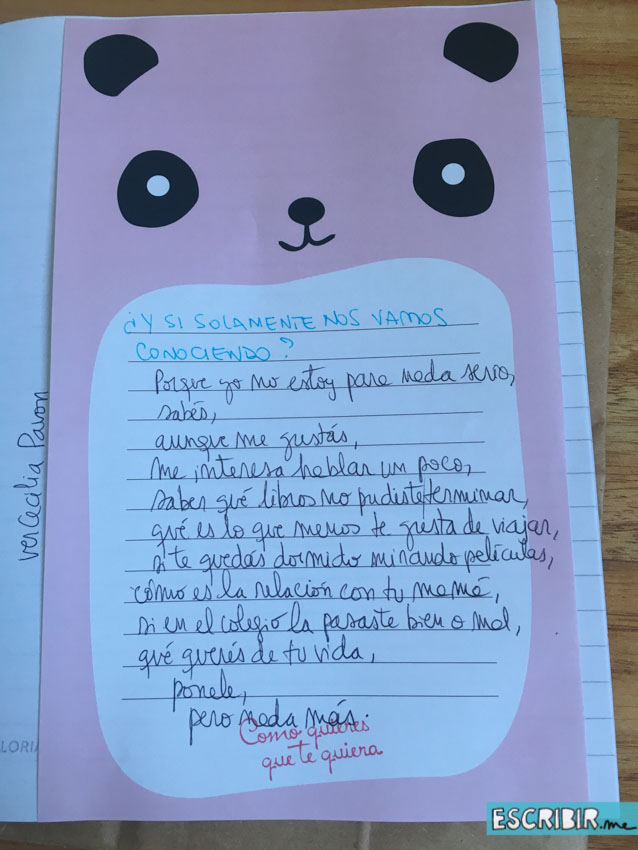 ¿Y SI SOLAMENTE NOS VAMOS
CONOCIENDO?
Porque yo no estoy para nada serio,
sabés,
aunque me gustás,
me interesa hablar un poco,
saber qué libros no pudiste terminar,
qué es lo que menos te gusta de viajar,
si te quedás dormido mirando películas,
cómo es la relación con tu mamá,
si en el colegio la pasaste bien o mal,
qué querés de tu vida,
ponele,
pero nada más.
Como quieres
que te quiera
ver Cecilia Pavon
LORIA
ESCRIBIR.me